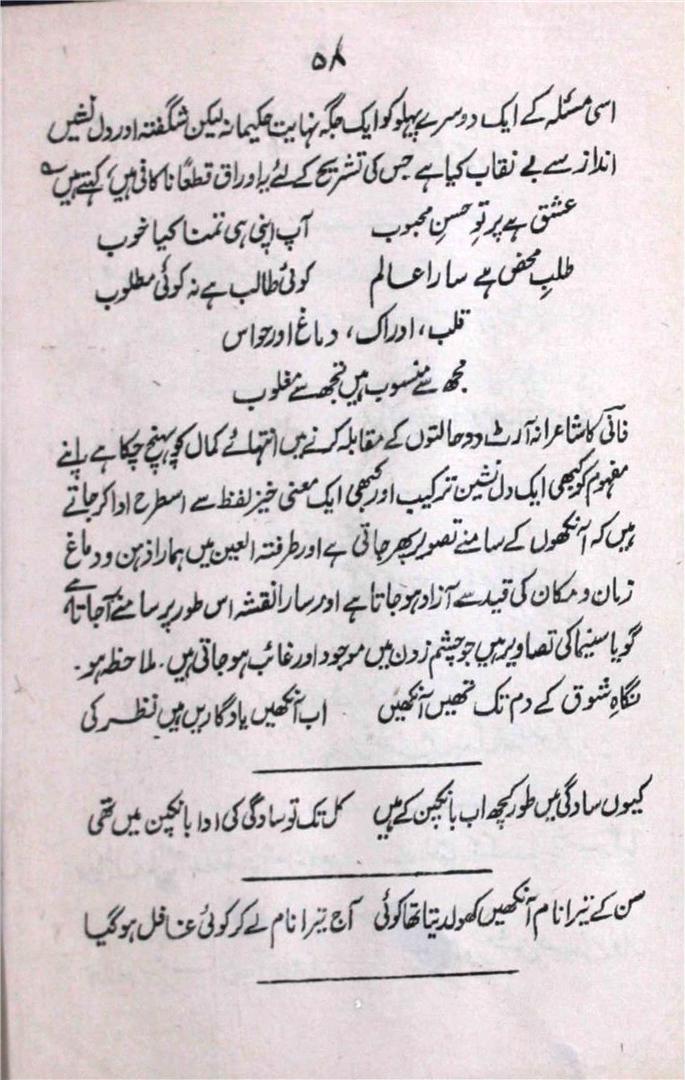 ۵۸
اسی مسئلہ کے ایک دوسرے پہلو کو ایک جگہ نہایت حکیمانہ لیکن شگفتہ اور دل نشیں
انداز سے بے نقاب کیا ہے جس کی تشریح کے لئے یہ اوراق قطعاً ناکافی ہیں، کہتے ہیں ؎
عشق ہے پرتوِ حسنِ محبوب آپ اپنی ہی تمنا کیا خوب
طلبِ محض ہے سارا عالم کوئی طالب ہے نہ کوئی مطلوب
قلب، ادراک، دماغ اور حواس
مجھ سے منسوب ہیں تجھ سے مغلوب
فانی کا شاعرانہ آرٹ دو حالتوں کے مقابلہ کرنے میں انتہائے کمال کو پہنچ چکا ہے اپنے
مفہوم کو کبھی ایک دل نشین ترکیب اور کبھی ایک معنی خیز لفظ سے اسطرح ادا کر جاتے
ہیں کہ آنکھوں کے سامنے تصویر پھر جاتی ہے اور طرفتہ العین میں ہمارا ذہن و دماغ
زمان و مکان کی قید سے آزاد ہو جاتا ہے اور سارا نقشہ اس طور پر سامنے آجاتا ہے
گویا سینما کی تصاویر ہیں جو چشم زدن میں موجود اور غائب ہو جاتی ہیں۔ ملاحظہ ہو۔
نگاہِ شوق کے دم تک تھیں آنکھیں اب آنکھیں یادگاریں ہیں نظر کی
کیوں سادگی میں طور کچھ اب بانکپن کے ہیں کل تک تو سادگی کی ادا بانکپن میں تھی
سن کے تیرا نام آنکھیں کھولدیتا تھا کوئی آج تیرا نام لے کر کوئی غافل ہو گیا